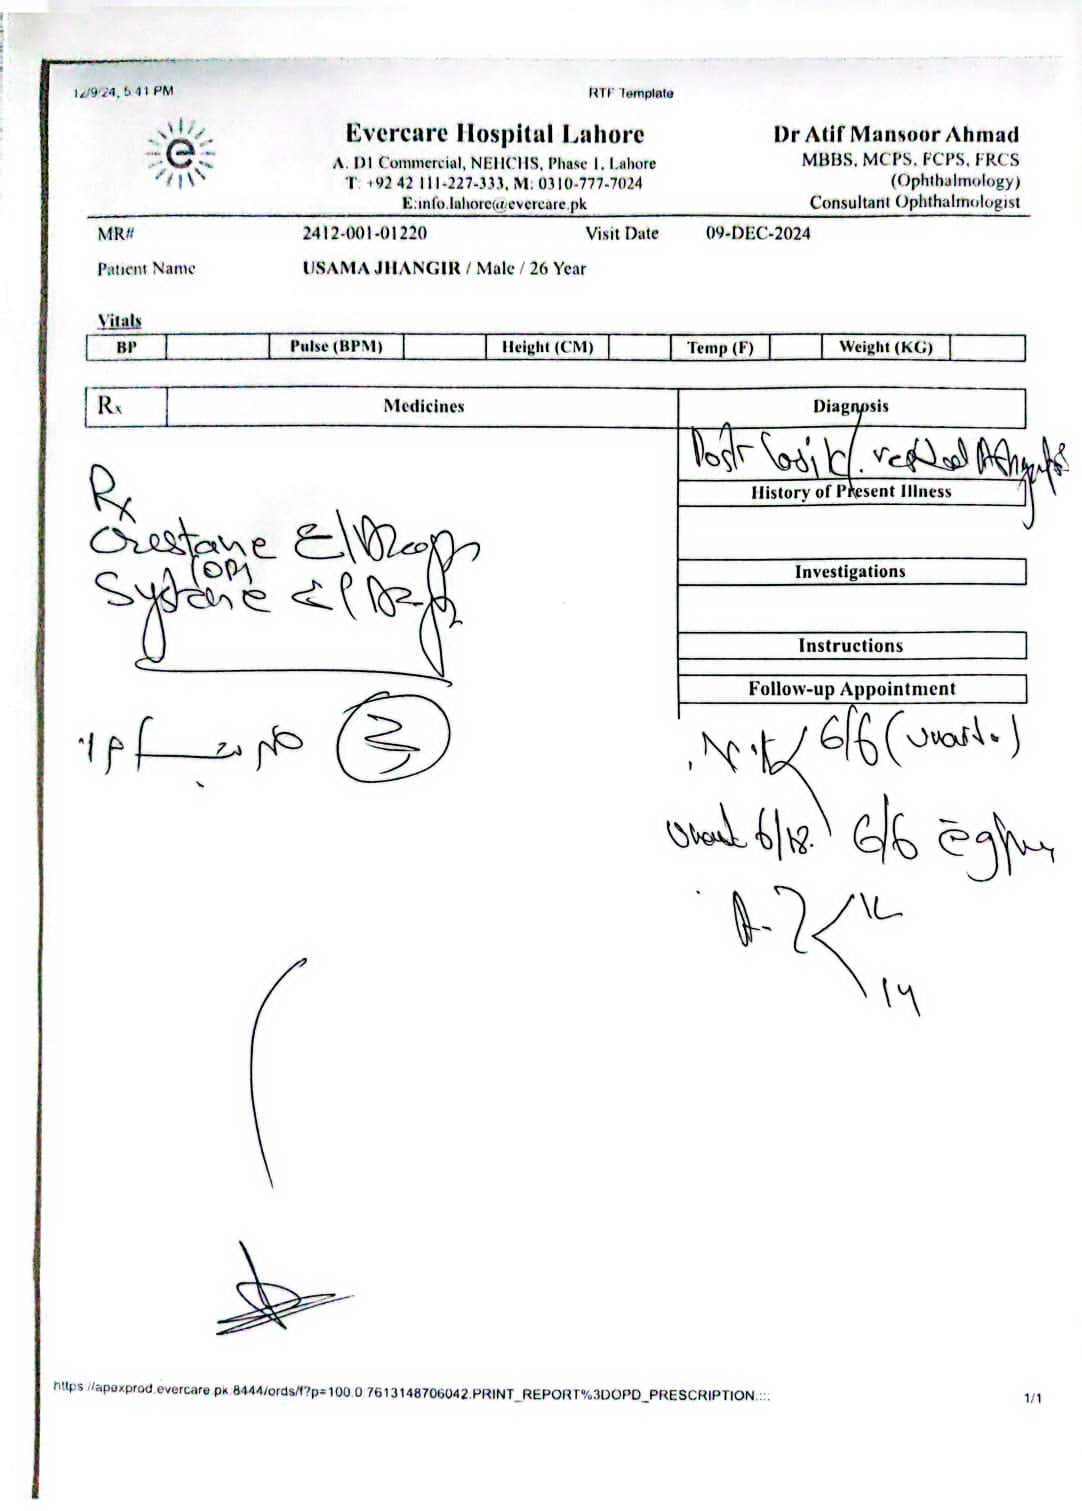 12/9/24, 5:41 PM
RTF Template
Evercare Hospital Lahore
A. D1 Commercial, NEHCHS, Phase 1, Lahore
T: +92 42 111-227-333, M: 0310-777-7024
E:info.lahore@evercare.pk
Dr Atif Mansoor Ahmad
MBBS, MCPS, FCPS, FRCS
(Ophthalmology)
Consultant Ophthalmologist
MR# 2412-001-01220 Visit Date 09-DEC-2024
Patient Name USAMA JHANGIR / Male / 26 Year
Vitals
BP Pulse (BPM) Height (CM) Temp (F) Weight (KG)
Rx Medicines Diagnosis
Post Lasik
History of Present Illness
Rx
Orestane E/Drops
(OR)
Systane E/Drops
Investigations
Instructions
Follow-up Appointment
3
6/6 (
6/18. 6/6
14
https://apexprod.evercare.pk:8444/ords/f?p=100:0:7613148706042:PRINT_REPORT%3DOPD_PRESCRIPTION:::::
1/1